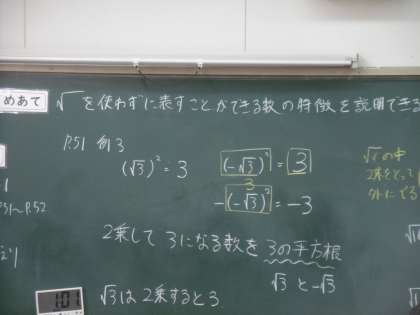 めあて
√ を使わずに表すことができる数の特徴を説明でき
P.51 例3
(√3)² = 3
(-√3)² = 3
3
-(-√3)² = -3
√の中
2乗をとって
外にでる
P.52
2乗して 3になる数を 3の平方根
√3 と -√3
√3は 2乗すると3
101